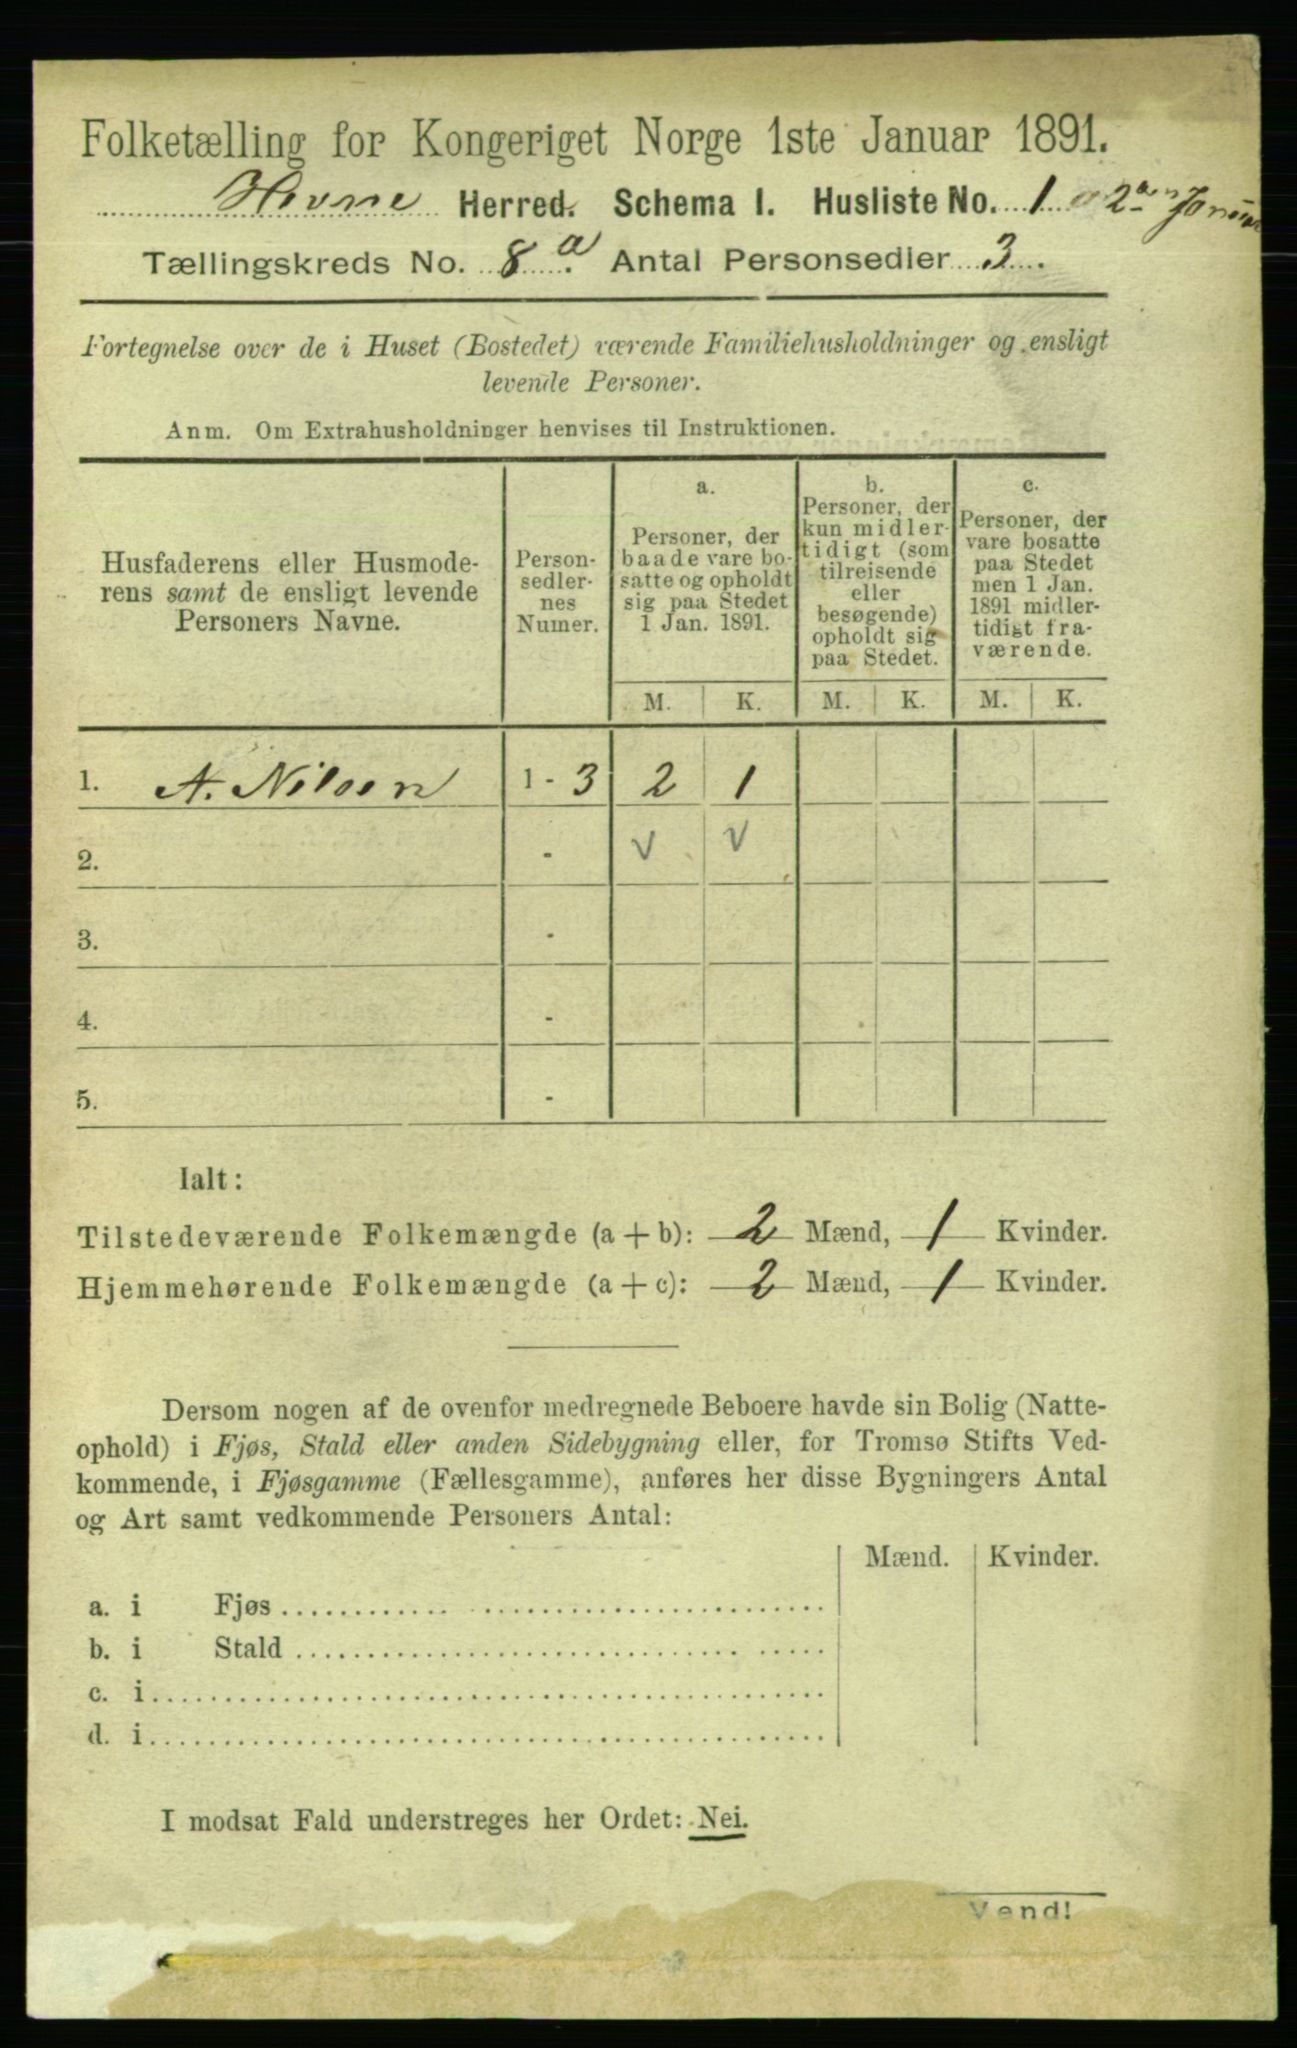 Folketælling for Kongeriget Norge 1ste Januar 1891.
Hevne Herred. Schema I. Husliste No. 1
Tællingskreds No. 8 a. Antal Personsedler 3.
Fortegnelse over de i Huset (Bostedet) værende Familiehusholdninger og ensligt
levende Personer.
Anm. Om Extrahusholdninger henvises til Instruktionen.
Husfaderens eller Husmode-
rens samt de ensligt levende
Personers Navne.
Person-
sedler-
nes
Numer.
a.
Personer, der
baade vare bo-
satte og opholdt
sig paa Stedet
1 Jan. 1891.
b.
Personer, der
kun midler-
tidigt (som
tilreisende
eller
besøgende)
opholdt sig
paa Stedet.
c.
Personer, der
vare bosatte
paa Stedet
men 1 Jan.
1891 midler-
tidigt fra-
værende.
M. K. M. K. M. K.
1. A. Nilsen 1 - 3 2 1
2. - V V
3. -
4. -
5. -
Ialt:
Tilstedeværende Folkemængde (a + b): 2 Mænd, 1 Kvinder.
Hjemmehørende Folkemængde (a + c): 2 Mænd, 1 Kvinder.
Dersom nogen af de ovenfor medregnede Beboere havde sin Bolig (Natte-
ophold) i Fjøs, Stald eller anden Sidebygning eller, for Tromsø Stifts Ved-
kommende, i Fjøsgamme (Fællesgamme), anføres her disse Bygningers Antal
og Art samt vedkommende Personers Antal:
Mænd. Kvinder.
a. i Fjøs
b. i Stald
c. i
d. i
I modsat Fald understreges her Ordet: Nei.
Vend!